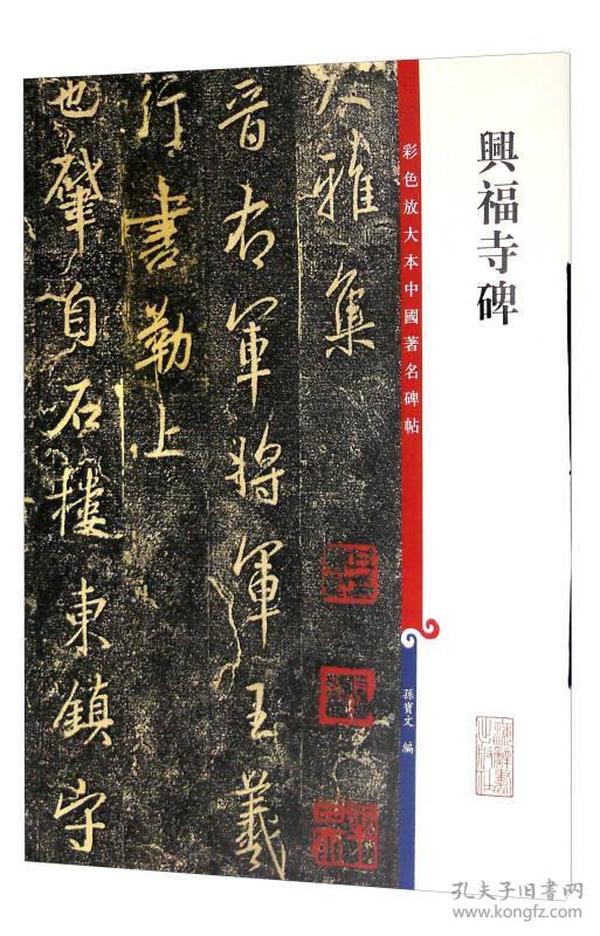 興福寺碑
彩色放大本中國著名碑帖
孫寳文 編
上海辭書出版社
大雅集
晉右軍將軍王羲
行書勒上
也肇自石樓東鎮守
孔夫子旧書网
www.kongfz.com